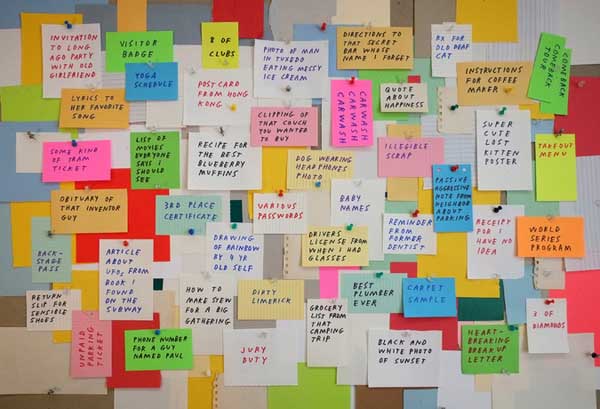 INVITATION
TO LONG
AGO PARTY
WITH OLD
GIRLFRIEND
VISITOR
BADGE
8 OF
CLUBS
PHOTO OF MAN
IN TUXEDO
EATING MESSY
ICE CREAM
DIRECTIONS TO
THAT SECRET
BAR WHOSE
NAME I FORGET
RX FOR
OLD DEAF
CAT
COMEBACK
COMEBACK
TOUR
YOGA
SCHEDULE
POST CARD
FROM HONG
KONG
CARWASH
CARWASH
CARWASH
QUOTE
ABOUT
HAPPINESS
INSTRUCTIONS
FOR COFFEE
MAKER
LYRICS TO
HER FAVORITE
SONG
CLIPPING OF
THAT COUCH
YOU WANTED
TO BUY
SUPER
CUTE
LOST
KITTEN
POSTER
SOME KIND
OF TRAM
TICKET
LIST OF
MOVIES
EVERYONE
SAYS I
SHOULD
SEE
RECIPE FOR
THE BEST
BLUEBERRY
MUFFINS
DOG WEARING
HEADPHONES
PHOTO
ILLEGIBLE
SCRAP
TAKEOUT
MENU
OBITUARY OF
THAT INVENTOR
GUY
3RD PLACE
CERTIFICATE
VARIOUS
PASSWORDS
BABY
NAMES
PASSIVE
AGGRESSIVE
NOTE FROM
NEIGHBOR
ABOUT
PARKING
BACK-
STAGE
PASS
ARTICLE
ABOUT
UFOS FROM
BOOK I
FOUND
ON THE
SUBWAY
DRAWING
OF RAINBOW
BY 4 YR
OLD SELF
DRIVERS
LICENSE FROM
WHEN I HAD
GLASSES
REMINDER
FROM
FORMER
DENTIST
RECEIPT
FOR I
HAVE NO
IDEA
WORLD
SERIES
PROGRAM
RETURN
SLIP FOR
SENSIBLE
SHOES
HOW TO
MAKE STEW
FOR A BIG
GATHERING
DIRTY
LIMERICK
BEST
PLUMBER
EVER
CARPET
SAMPLE
3 OF
DIAMONDS
UNPAID
PARKING
TICKET
PHONE NUMBER
FOR A GUY
NAMED PAUL
JURY
DUTY
GROCERY
LIST FROM
THAT
CAMPING
TRIP
BLACK AND
WHITE PHOTO
OF SUNSET
HEART-
BREAKING
BREAK UP
LETTER